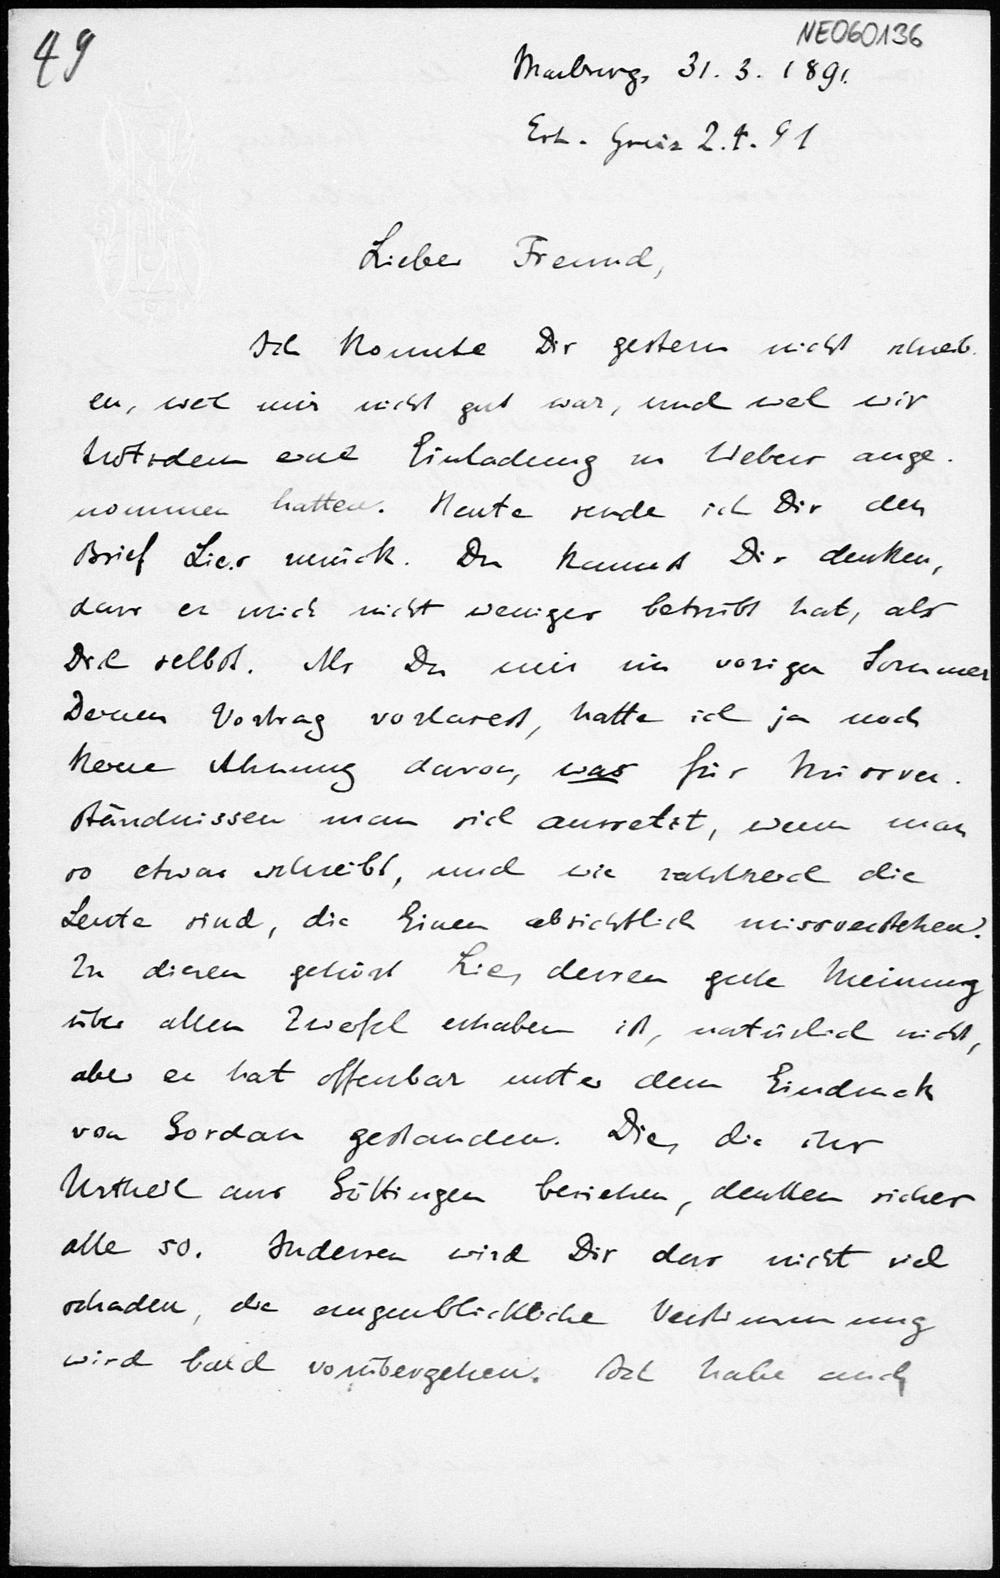 49
NE060136
Marburg, 31. 3. 1891.
Erh. Greiz 2.4.91
Lieber Freund,
Ich konnte Dir gestern nicht schreib-
en, weil mir nicht gut war, und weil wir
trotzdem eine Einladung zu Webers ange-
nommen hatten. Heute sende ich Dir den
Brief Lies zurück. Du kannst Dir denken,
dass er mich nicht weniger betrübt hat, als
Dich selbst. Als Du mir im vorigen Sommer
Deinen Vortrag vorlasest, hatte ich ja noch
keine Ahnung davon, was für Missver-
ständnissen man sich aussetzt, wenn man
so etwas schreibt, und wie zahlreich die
Leute sind, die Einen absichtlich missverstehen.
Zu diesen gehört Lie, dessen gute Meinung
über allen Zweifel erhaben ist, natürlich nicht,
aber er hat offenbar unter dem Eindruck
von Gordan gestanden. Die, die ihr
Urtheil aus Göttingen beziehen, denken sicher
alle so. Indessen wird Dir das nicht viel
schaden, die augenblickliche Verstimmung
wird bald vorübergehen. Ich habe auch